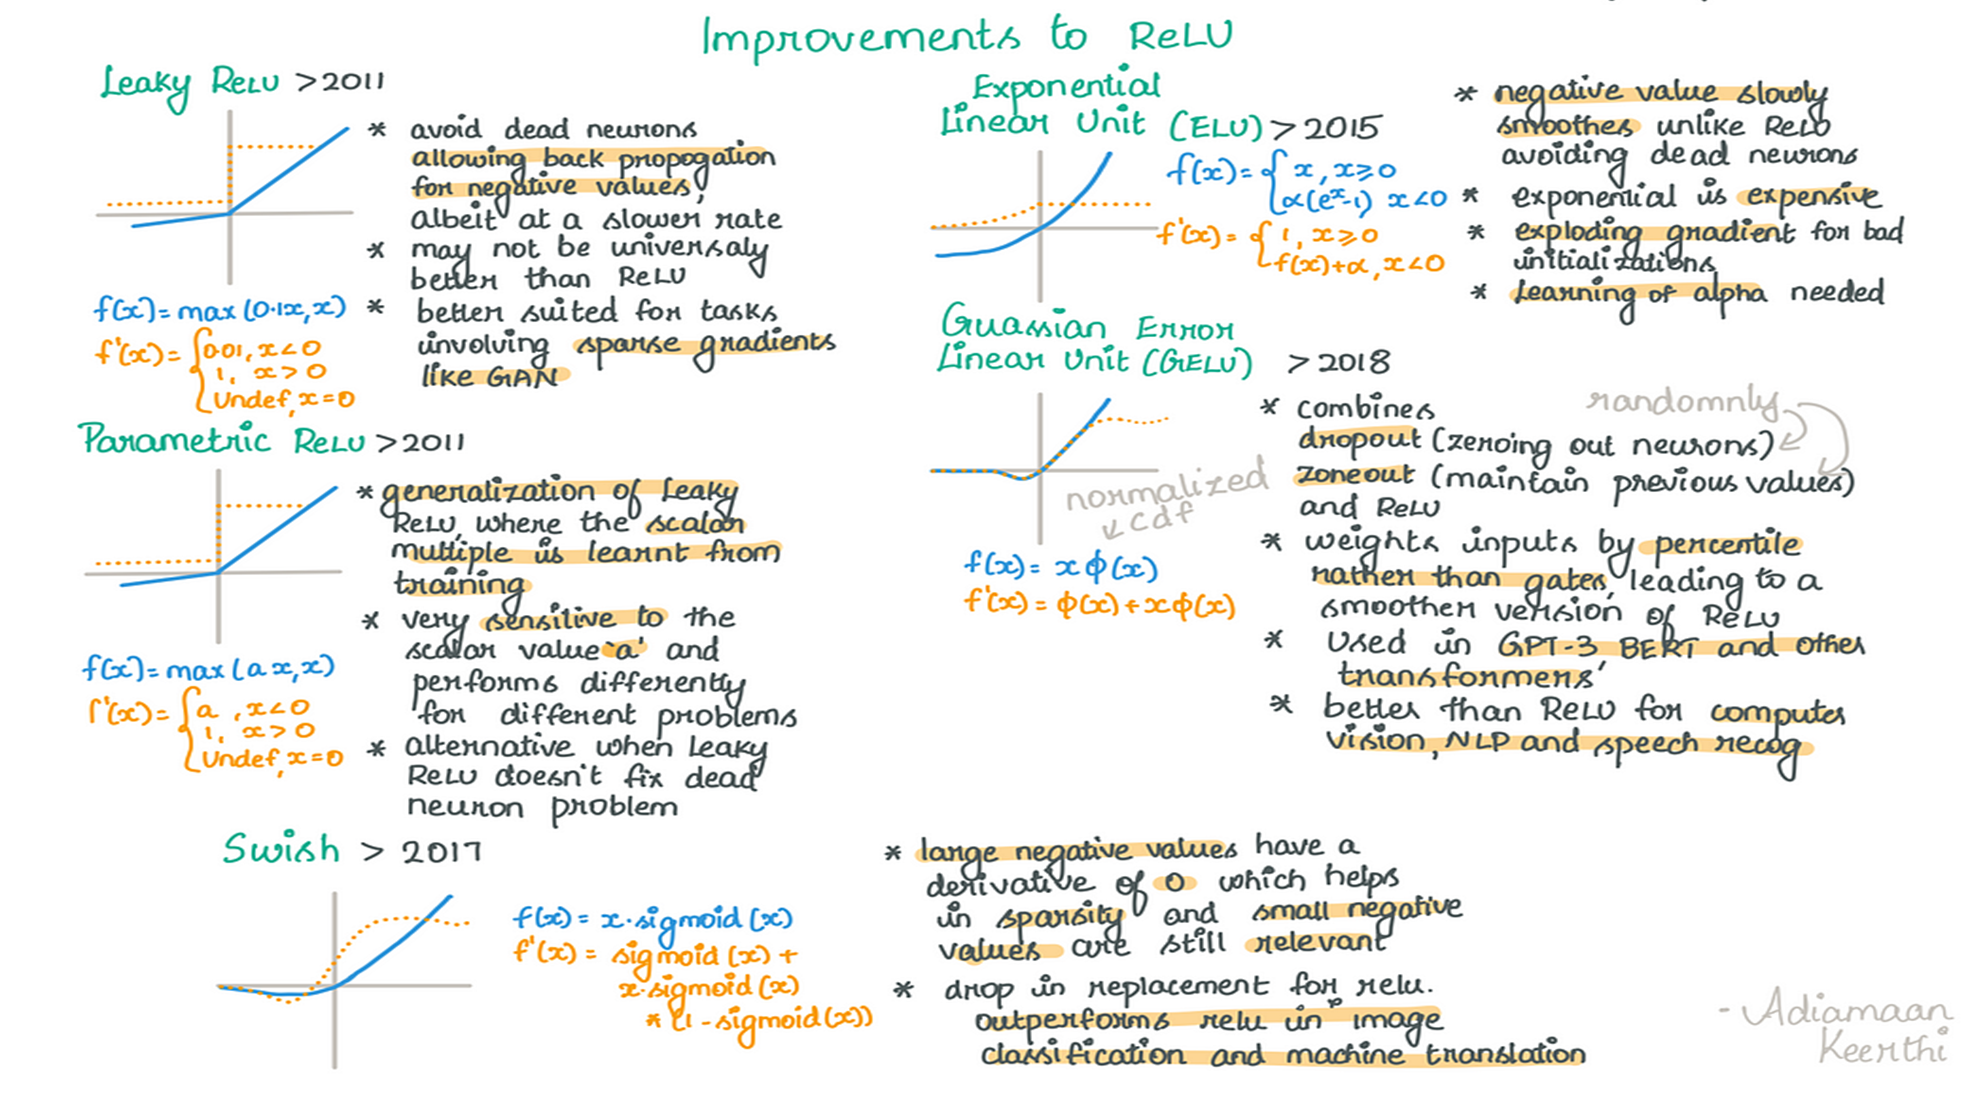 Improvements to ReLU
Leaky ReLU >2011
* avoid dead neurons
allowing back propogation
for negative values,
albeit at a slower rate
* may not be universaly
better than ReLU
* better suited for tasks
involving sparse gradients
like GAN
f(x)=max(0.1x,x)
f'(x)={0.01, x<0
1, x>0
Undef, x=0
Parametric ReLU >2011
* generalization of Leaky
ReLU, where the scalar
multiple is learnt from
training
* very sensitive to the
scalar value 'a' and
performs differently
for different problems
* alternative when Leaky
ReLU doesn't fix dead
neuron problem
f(x)=max(ax,x)
f'(x)={a, x<0
1, x>0
Undef, x=0
Exponential
Linear Unit (ELU) >2015
f(x)={x, x≥0
α(e^x-1) x<0
f'(x)={1, x≥0
f(x)+α, x<0
* negative value slowly
smoothes unlike ReLU
avoiding dead neurons
* exponential is expensive
* exploding gradient for bad
initializations
* Learning of alpha needed
Guassian Error
Linear Unit (GELU) >2018
normalized
cdf
f(x)= xϕ(x)
f'(x)= ϕ(x)+xϕ(x)
randomnly
* combines
dropout (zeroing out neurons)
zoneout (maintain previous values)
and ReLU
* weights inputs by percentile
rather than gates, leading to a
smoother version of ReLU
* Used in GPT-3 BERT and other
transformers'
* better than ReLU for computer
vision, NLP and speech recog
Swish > 2017
f(x)= x·sigmoid(x)
f'(x)= sigmoid(x)+
x·sigmoid(x)
*(1-sigmoid(x))
* large negative values have a
derivative of 0 which helps
in sparsity and small negative
values are still relevant
* drop in replacement for relu.
outperforms relu in image
classification and machine translation
- Adiamaan
Keerthi